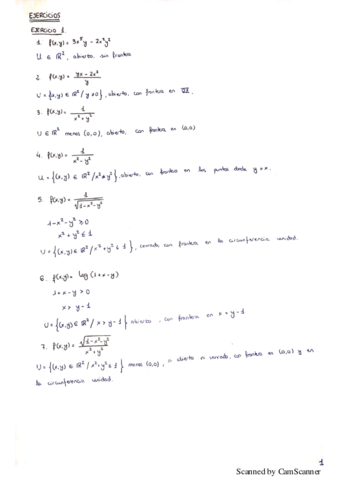 EJERCICIOS
EJERCICIO 1.
1. f(x,y) = 3x⁵y - 2x³y²
U ∈ ℝ², abierto, sin frontera
2. f(x,y) = (yx - 2x²)/y
U = {(x,y) ∈ ℝ² / y ≠ 0}, abierto, con frontera en
3. f(x,y) = 1/(x² + y²)
U ∈ ℝ² menos (0,0), abierto, con frontera en (0,0)
4. f(x,y) = 1/(x² - y²)
U = {(x,y) ∈ ℝ² / x² ≠ y²}, abierto, con frontera en los puntos donde y = x.
5. f(x,y) = 1/√(1 - x² - y²)
1 - x² - y² ≥ 0
x² + y² ≤ 1
U = {(x,y) ∈ ℝ² / x² + y² ≤ 1}, cerrado con frontera en la circunferencia unidad.
6. f(x,y) = log (1 + x - y)
1 + x - y > 0
x > y - 1
U = {(x,y) ∈ ℝ² / x > y - 1} abierto, con frontera en x = y - 1
7. f(x,y) = √(1 - x² - y²)/(x² + y²)
U = {(x,y) ∈ ℝ² / x² + y² ≤ 1} menos (0,0), ni abierto ni cerrado, con frontera en (0,0) y en
la circunferencia unidad.
1
Scanned by CamScanner